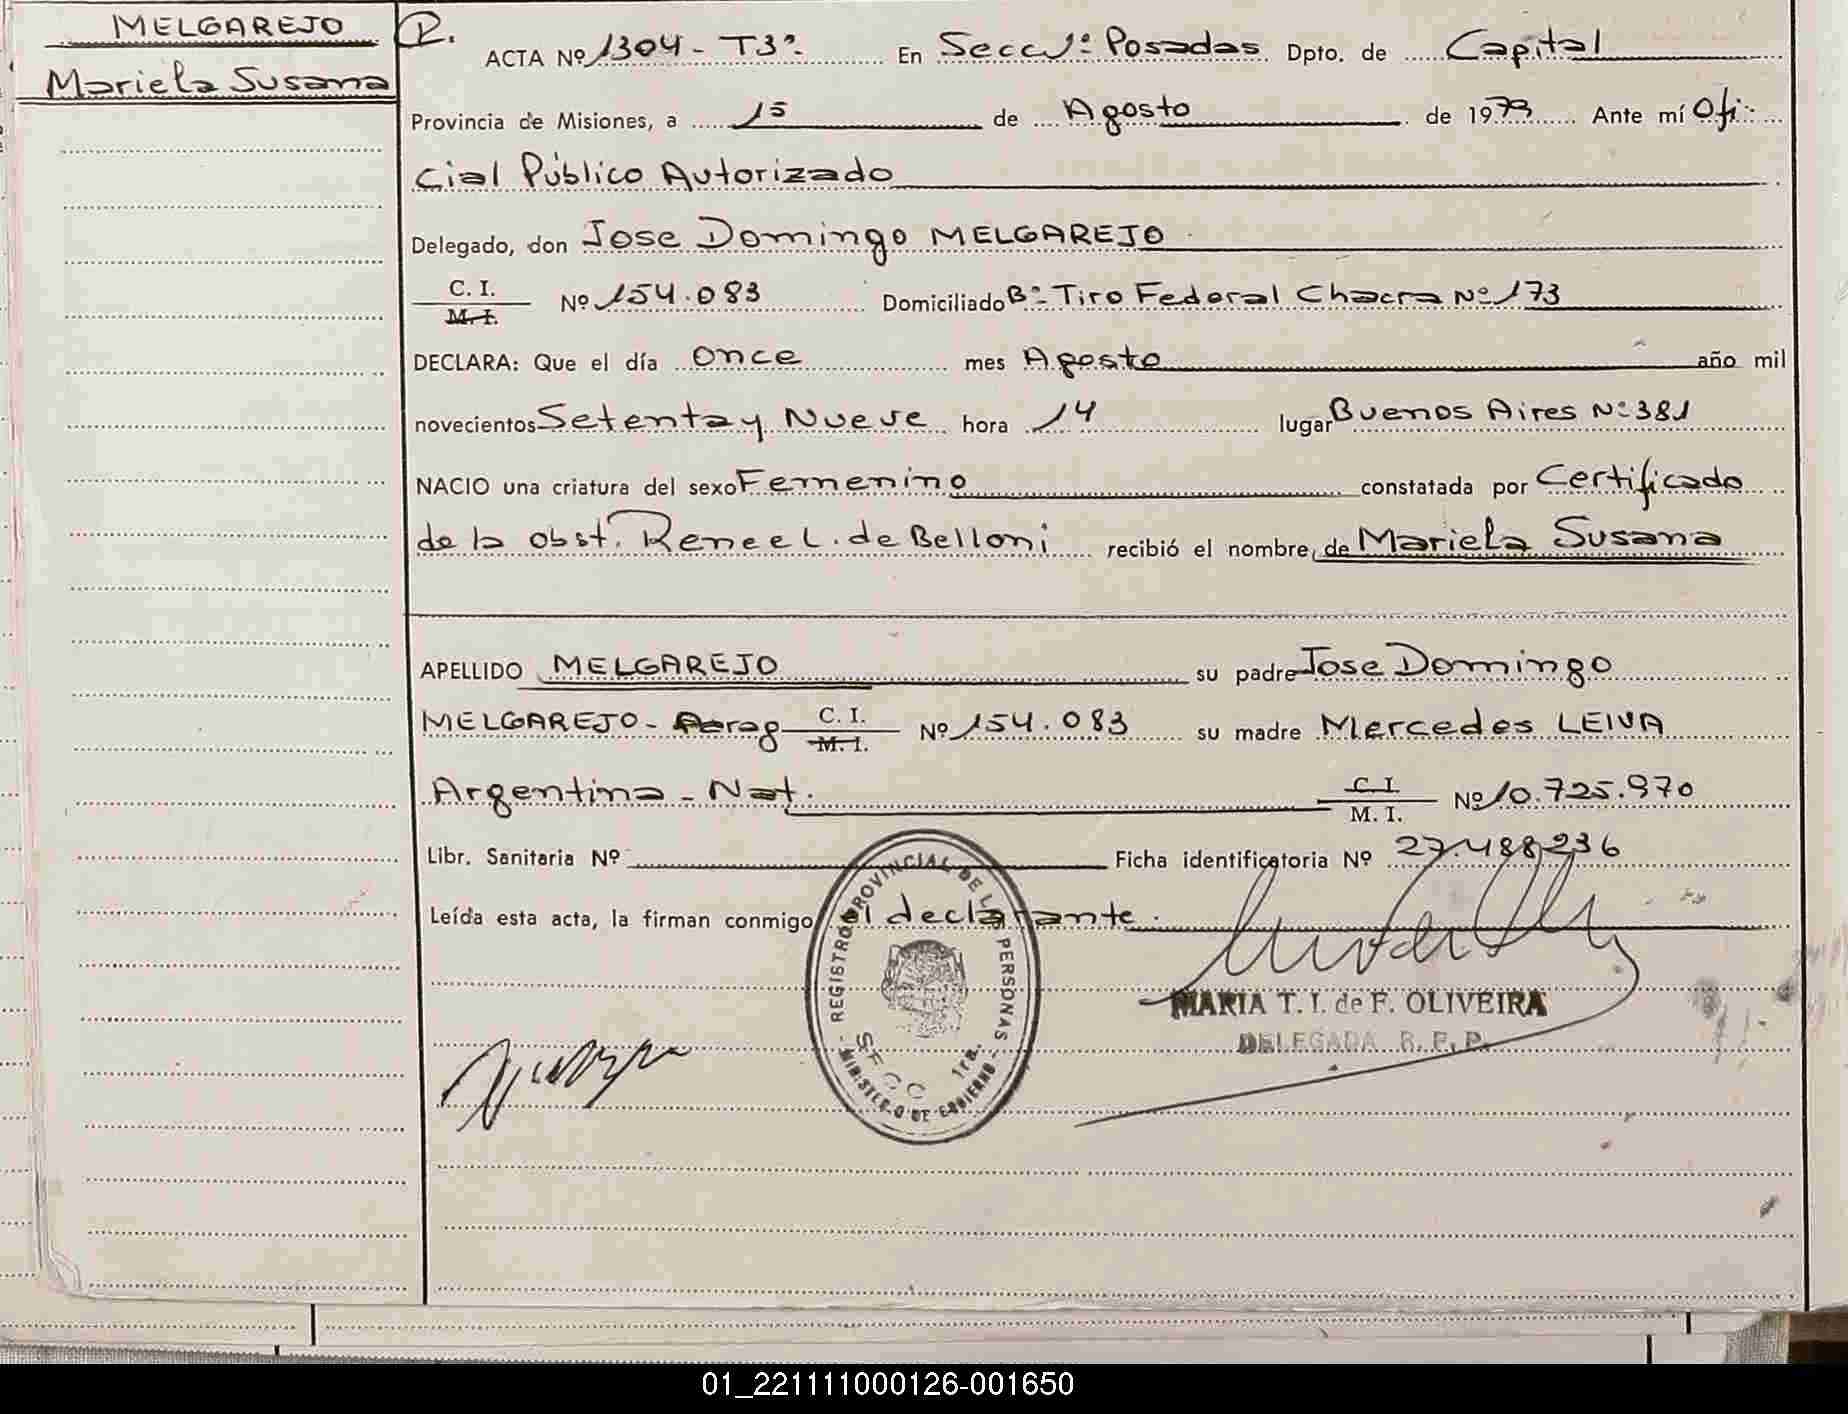 MELGAREJO
Mariela Susana
P.
ACTA Nº 1304 - T3º- En Secc 1º Posadas Dpto. de Capital
Provincia de Misiones, a 15 de Agosto de 1979 Ante mí Ofi
cial Público Autorizado
Delegado, don Jose Domingo MELGAREJO
C. I.
M. I.
Nº 154.083 Domiciliado Bº- Tiro Federal Chacra Nº 173
DECLARA: Que el día once mes Agosto año mil
novecientos Setenta y Nueve hora 14 lugar Buenos Aires Nº 381
NACIO una criatura del sexo Femenino constatada por Certificado
de la obst. Renee L. de Belloni recibió el nombre, de Mariela Susana
APELLIDO MELGAREJO su padre Jose Domingo
MELGAREJO - Parag C. I. M. I. Nº 154.083 su madre Mercedes LEIVA
Argentina - Nat. C. I. M. I. Nº 10.725.970
Libr. Sanitaria Nº Ficha identificatoria Nº 27.488.236
Leída esta acta, la firman conmigo el declarante.
REGISTRO PROVINCIAL DE LAS PERSONAS
SECC 1ra.
- MINISTERIO DE GOBIERNO -
MARIA T. I. de F. OLIVEIRA
DELEGADA R. P. P.
01_221111000126-001650